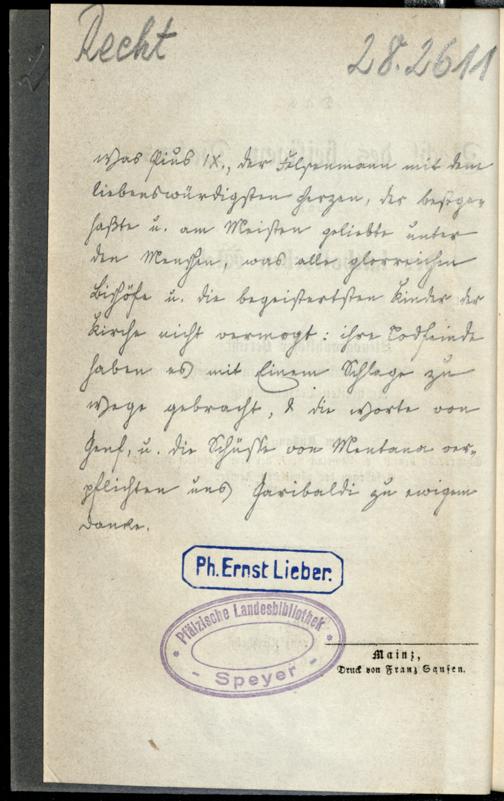 Recht
28.2611
Was Pius IX., der Felsenmann mit dem
liebenswürdigsten Herzen, der bestge-
haßte u. am Meisten geliebte unter
den Menschen, was alle glorreichen
Bischöfe u. die begeistertsten Kinder der
Kirche nicht vermogt: ihre Todfeinde
haben es mit Einem Schlage zu
Wege gebracht, & die Worte von
Genf, u. die Schüsse von Mentana ver-
pflichten uns Garibaldi zu ewigem
Danke.
Ph. Ernst Lieber.
Pfälzische Landesbibliothek
- Speyer -
Mainz,
Druck von Franz Sausen.